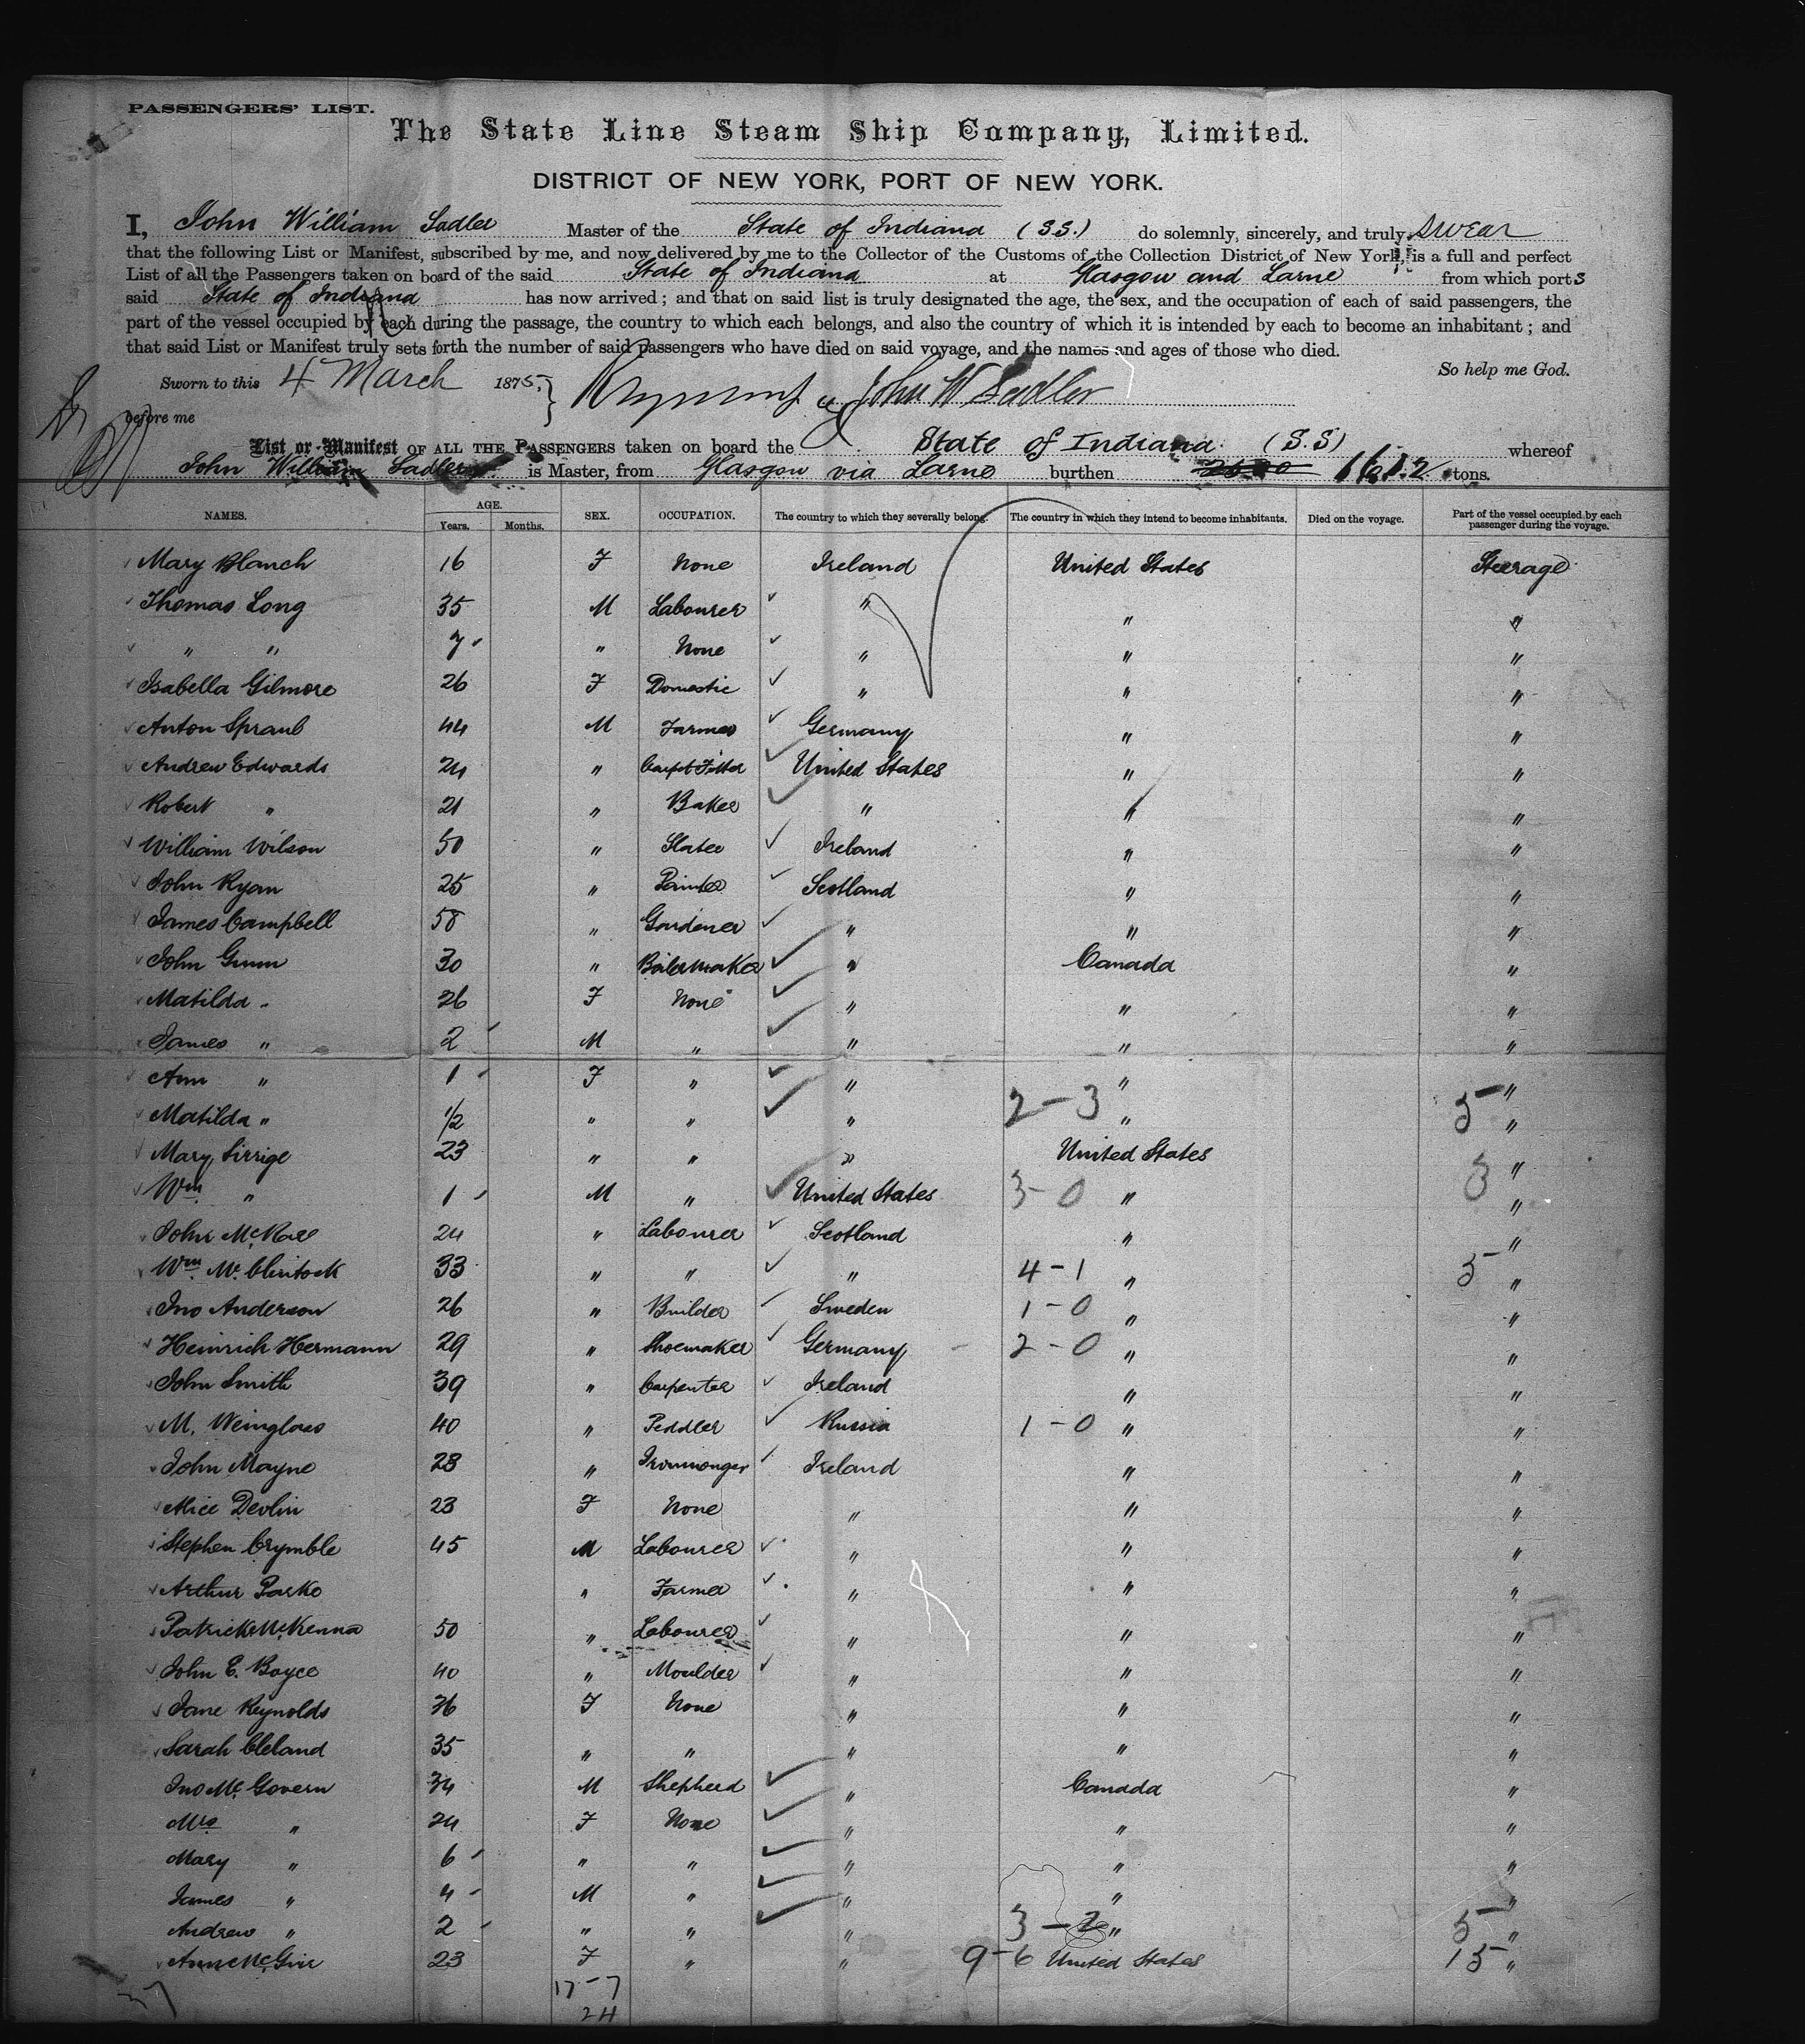 PASSENGERS' LIST.
The State Line Steam Ship Company, Limited.
DISTRICT OF NEW YORK, PORT OF NEW YORK.
I, John William Sadler Master of the State of Indiana (S.S.) do solemnly, sincerely, and truly swear
that the following List or Manifest, subscribed by me, and now delivered by me to the Collector of the Customs of the Collection District of New York, is a full and perfect
List of all the Passengers taken on board of the said State of Indiana at Glasgow and Larne from which ports
said State of Indiana has now arrived; and that on said list is truly designated the age, the sex, and the occupation of each of said passengers, the
part of the vessel occupied by each during the passage, the country to which each belongs, and also the country of which it is intended by each to become an inhabitant; and
that said List or Manifest truly sets forth the number of said passengers who have died on said voyage, and the names and ages of those who died.
So help me God.
Sworn to this 4 March 1875, } John W Sadler
before me
List or Manifest OF ALL THE PASSENGERS taken on board the State of Indiana (S.S) whereof
John William Sadler is Master, from Glasgow via Larne burthen tons.
NAMES. AGE. Years. Months. SEX. OCCUPATION. The country to which they severally belong. The country in which they intend to become inhabitants. Died on the voyage. Part of the vessel occupied by each passenger during the voyage.
Mary Blanch 16 F None Ireland United States Steerage
Thomas Long 35 M Labourer " " "
" " 7 " None " " "
Isabella Gilmore 26 F Domestic " " "
Anton Spraub 44 M Farmer Germany " "
Andrew Edwards 24 " Carpt Fitter United States " "
Robert " 21 " Baker " " "
William Wilson 50 " Slater Ireland " "
John Ryan 25 " Painter Scotland " "
James Campbell 58 " Gardener " " "
John Gunn 30 " Boilermaker " Canada "
Matilda " 26 F None " " "
James " 2 M " " " "
Ann " 1 F " " " "
Matilda " 1/2 " " " 2-3 " 5 "
Mary Sirrige 23 " " " United States "
Wm " 1 M " United States 3-0 " 3 "
John McKae 24 " Labourer Scotland " "
Wm McClintock 33 " " " 4-1 " 5 "
Jno Anderson 26 " Builder Sweden 1-0 " "
Heinrich Hermann 29 " Shoemaker Germany 2-0 " "
John Smith 39 " Carpenter Ireland " "
M. Weinglass 40 " Peddler Russia 1-0 " "
John Mayne 28 " Ironmonger Ireland " "
Alice Devlin 23 F None " " "
Stephen Crymble 45 M Labourer " " "
Arthur Parko " Farmer " " "
Patrick McKenna 50 " Labourer " " "
John E. Boyce 40 " Moulder " " "
Jane Reynolds 36 F None " " "
Sarah Cleland 35 " " " " "
Jno Mc Govern 34 M Shepherd " Canada "
Mrs " 34 F None " " "
Mary " 6 " " " " "
James " 4 M " " " "
Andrew " 2 " " " 3-2 " 5 "
Ann McGuir 23 F " " 9-6 United States 15 "
17-7
24
37